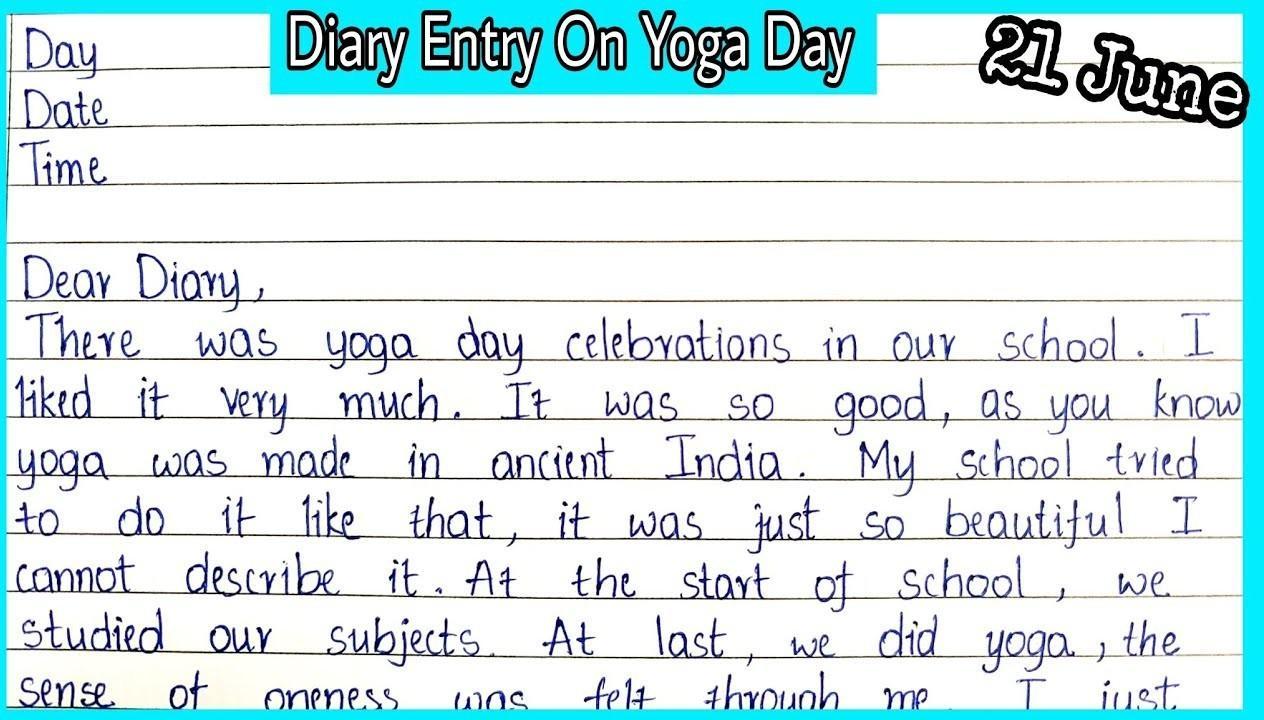 Diary Entry On Yoga Day
21 June
Day
Date
Time
Dear Diary,
There was yoga day celebrations in our school. I
liked it very much. It was so good, as you know
yoga was made in ancient India. My school tried
to do it like that, it was just so beautiful I
cannot describe it. At the start of school, we
studied our subjects. At last, we did yoga, the
sense of oneness was felt through me I just